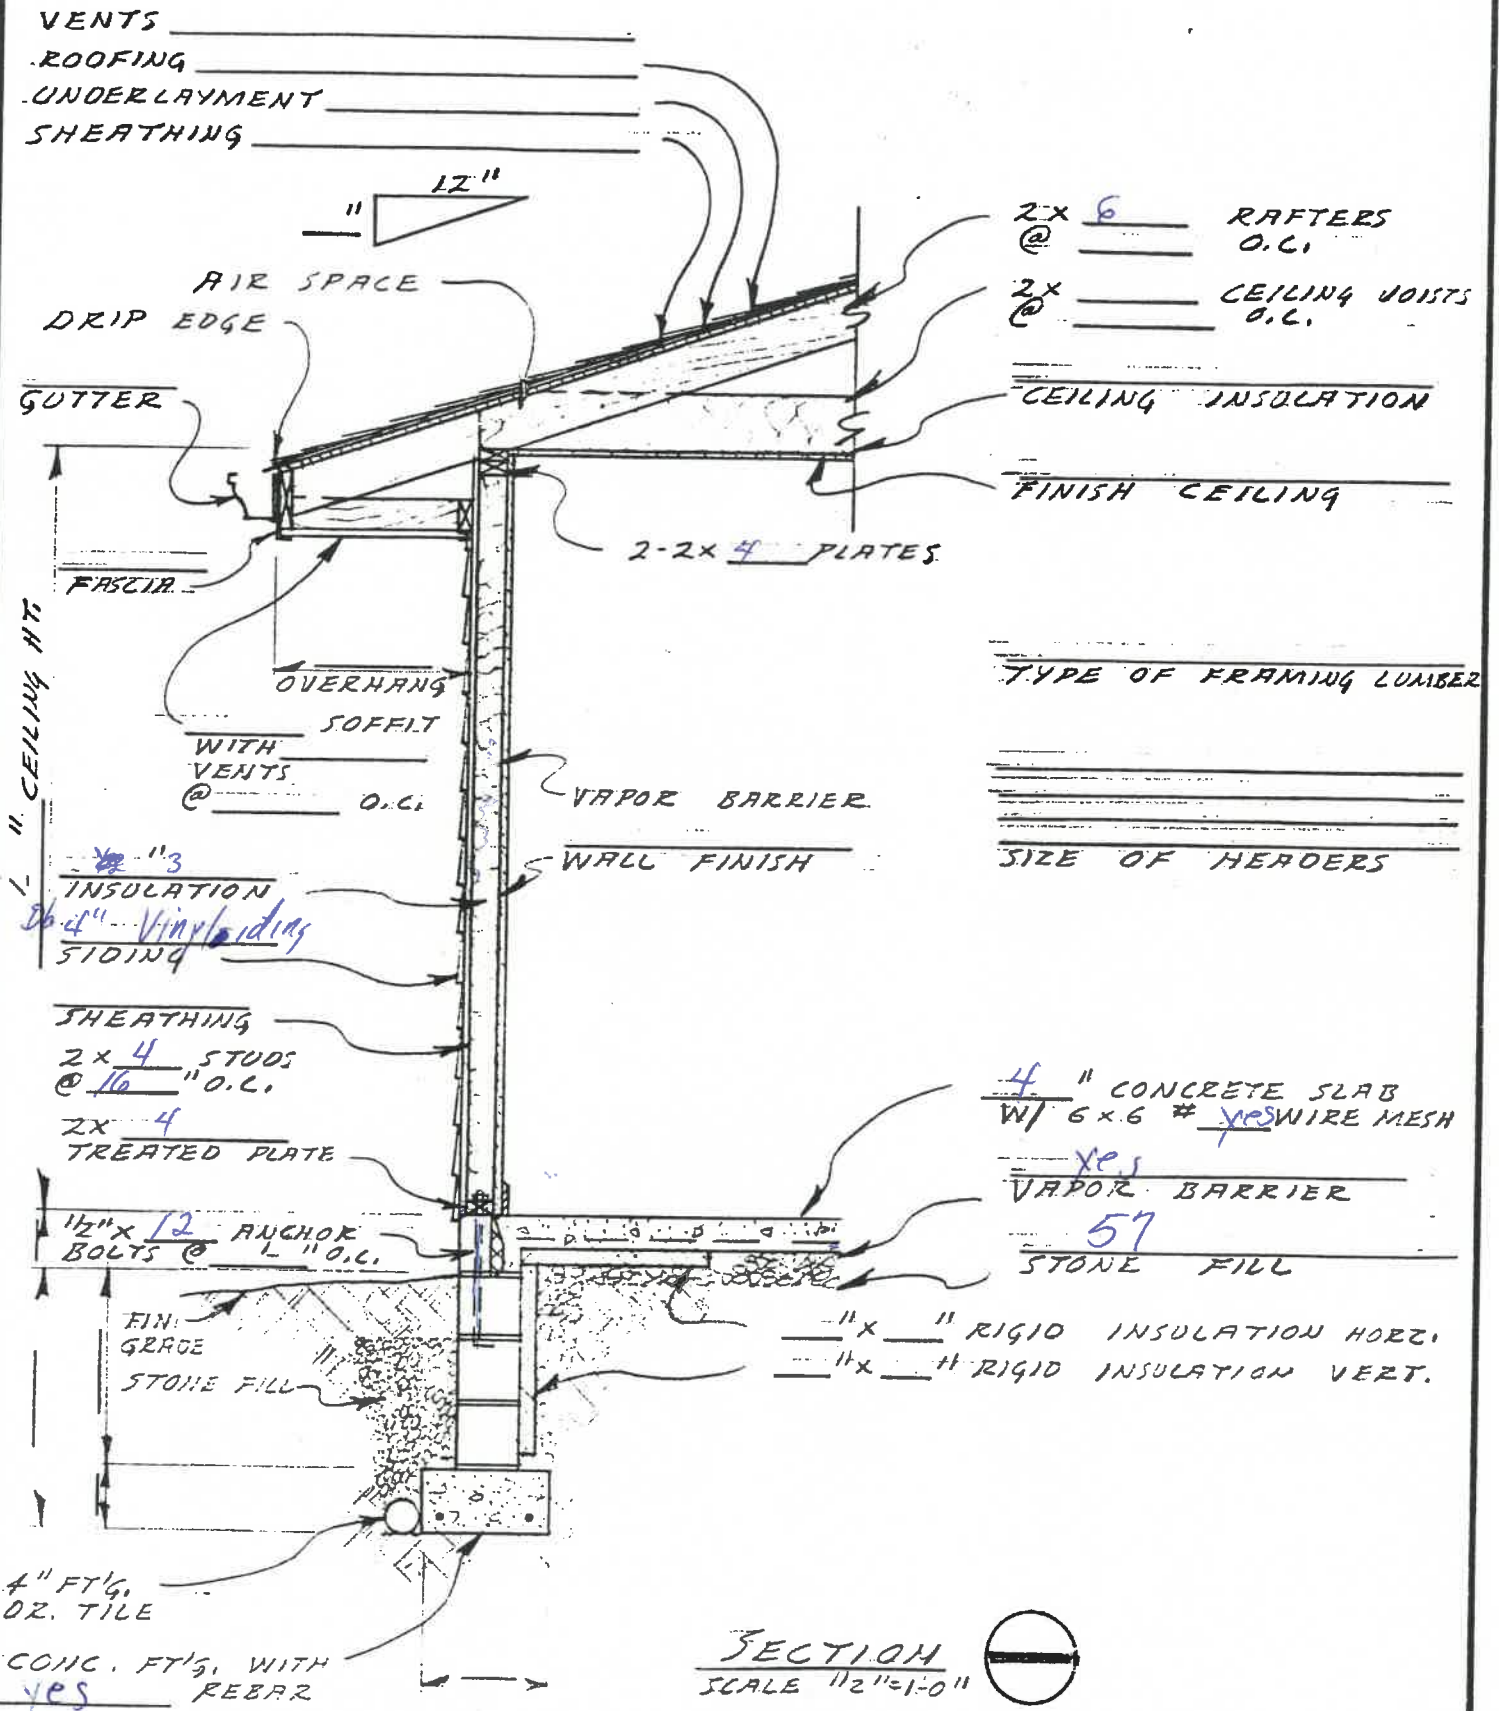 VENTS
ROOFING
UNDERLAYMENT
SHEATHING
12"
"
AIR SPACE
DRIP EDGE
GUTTER
FASCIA
CEILING HT.
OVERHANG
SOFFIT
WITH
VENTS
@ O.C.
"3
INSULATION
4" Vinyl siding
SIDING
SHEATHING
2 x 4 STUDS
@ 16 " O.C.
2x 4
TREATED PLATE
1/2" x 12 ANCHOR
BOLTS @ '- " O.C.
FIN.
GRADE
STONE FILL
4" FT'G.
DR. TILE
CONC. FT'G. WITH
yes REBAR
2 x 6 RAFTERS
@ O.C.
2 x CEILING JOISTS
@ O.C.
CEILING INSULATION
FINISH CEILING
2-2x 4 PLATES
TYPE OF FRAMING LUMBER
VAPOR BARRIER
WALL FINISH
SIZE OF HEADERS
4 " CONCRETE SLAB
W/ 6 x 6 # yes WIRE MESH
yes
VAPOR BARRIER
57
STONE FILL
" x " RIGID INSULATION HORZ.
" x " RIGID INSULATION VERT.
SECTION
SCALE 1/2"=1'-0"